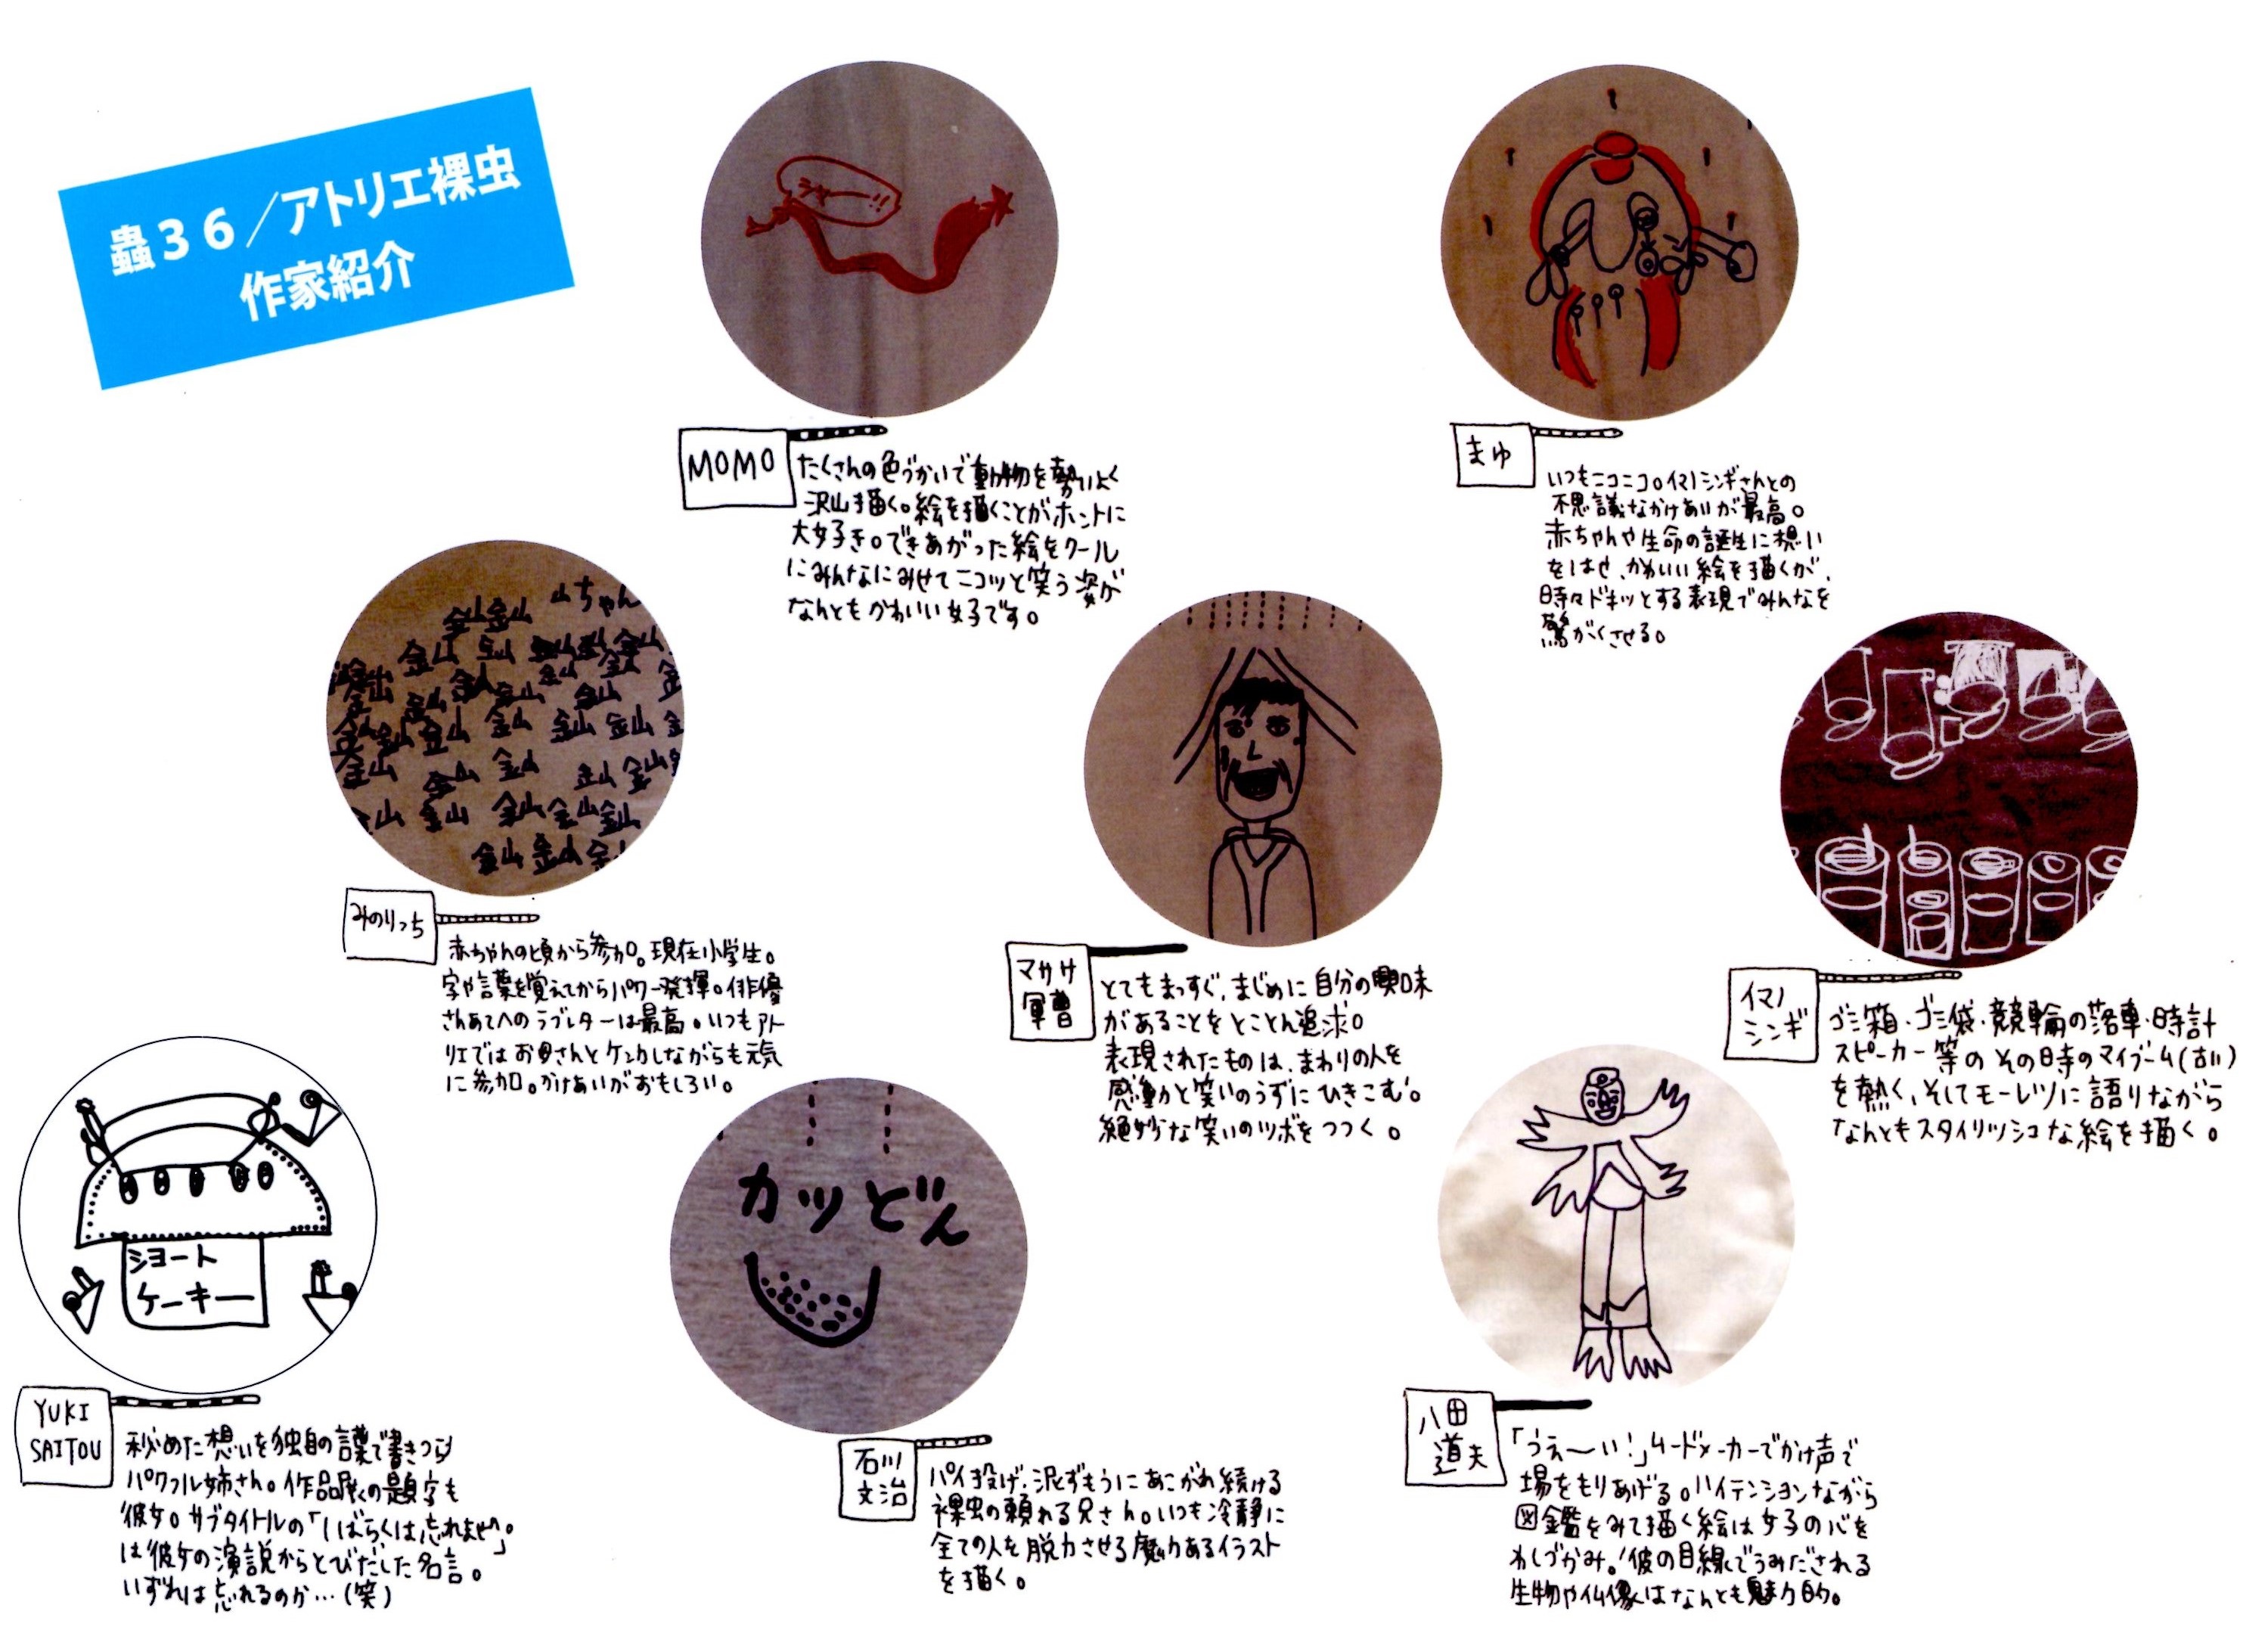 蟲36／アトリエ裸虫
作家紹介
シャー!!
MOMO
たくさんの色づかいで動物を勢いよく
沢山描く。絵を描くことがホントに
大好き。できあがった絵をクール
にみんなにみせてニコッと笑う姿が
なんともかわいい女子です。
まゆ
いつもニコニコ。イマノシンギさんとの
不思議なかけあいが最高。
赤ちゃんや生命の誕生に想い
をはせ、かわいい絵を描くが、
時々ドキッとする表現でみんなを
驚がくさせる。
山ちゃん
金山 金山
金山 金山 金山 金山 金山
金山 金山 金山 金山 金山
金山 金山 金山 金山 金山 金山
金山 金山 金山 金山 金山
金山 金山 金山 金山 金山
金山 金山 金山
みのりっち
赤ちゃんの頃から参加。現在小学生。
字や言葉を覚えてからパワー発揮。俳優
さんあてへのラブレターは最高。いつもアト
リエではお母さんとケンカしながらも元気
に参加。かけあいがおもしろい。
マサケ
軍曹
とてもまっすぐ、まじめに自分の興味
があることをとことん追求。
表現されたものは、まわりの人を
感動と笑いのうずにひきこむ。
絶妙な笑いのツボをつつく。
イマノ
シンギ
ゴミ箱・ゴミ袋・競輪の落車・時計
スピーカー等のその時のマイブーム(古い)
を熱く、そしてモーレツに語りながら
なんともスタイリッシュな絵を描く。
ショート
ケーキー
YUKI
SAITOU
秘めた想いを独自の言葉で書きつづる
パワフル姉さん。作品展の題字も
彼女。サブタイトルの「しばらくは忘れません。」
は彼女の演説からとびだした名言。
いずれは忘れるのか…(笑)
カツどん
石川
文治
パイ投げ、泥ずもうにあこがれ続ける
裸虫の頼れる兄さん。いつも冷静に
全ての人を脱力させる魔力あるイラスト
を描く。
八田
道夫
「うぇ〜い!」ムードメーカーでかけ声で
場をもりあげる。ハイテンションながら
図鑑をみて描く絵は女子の心を
わしづかみ。彼の目線でうみだされる
生物や仏像はなんとも魅力的。